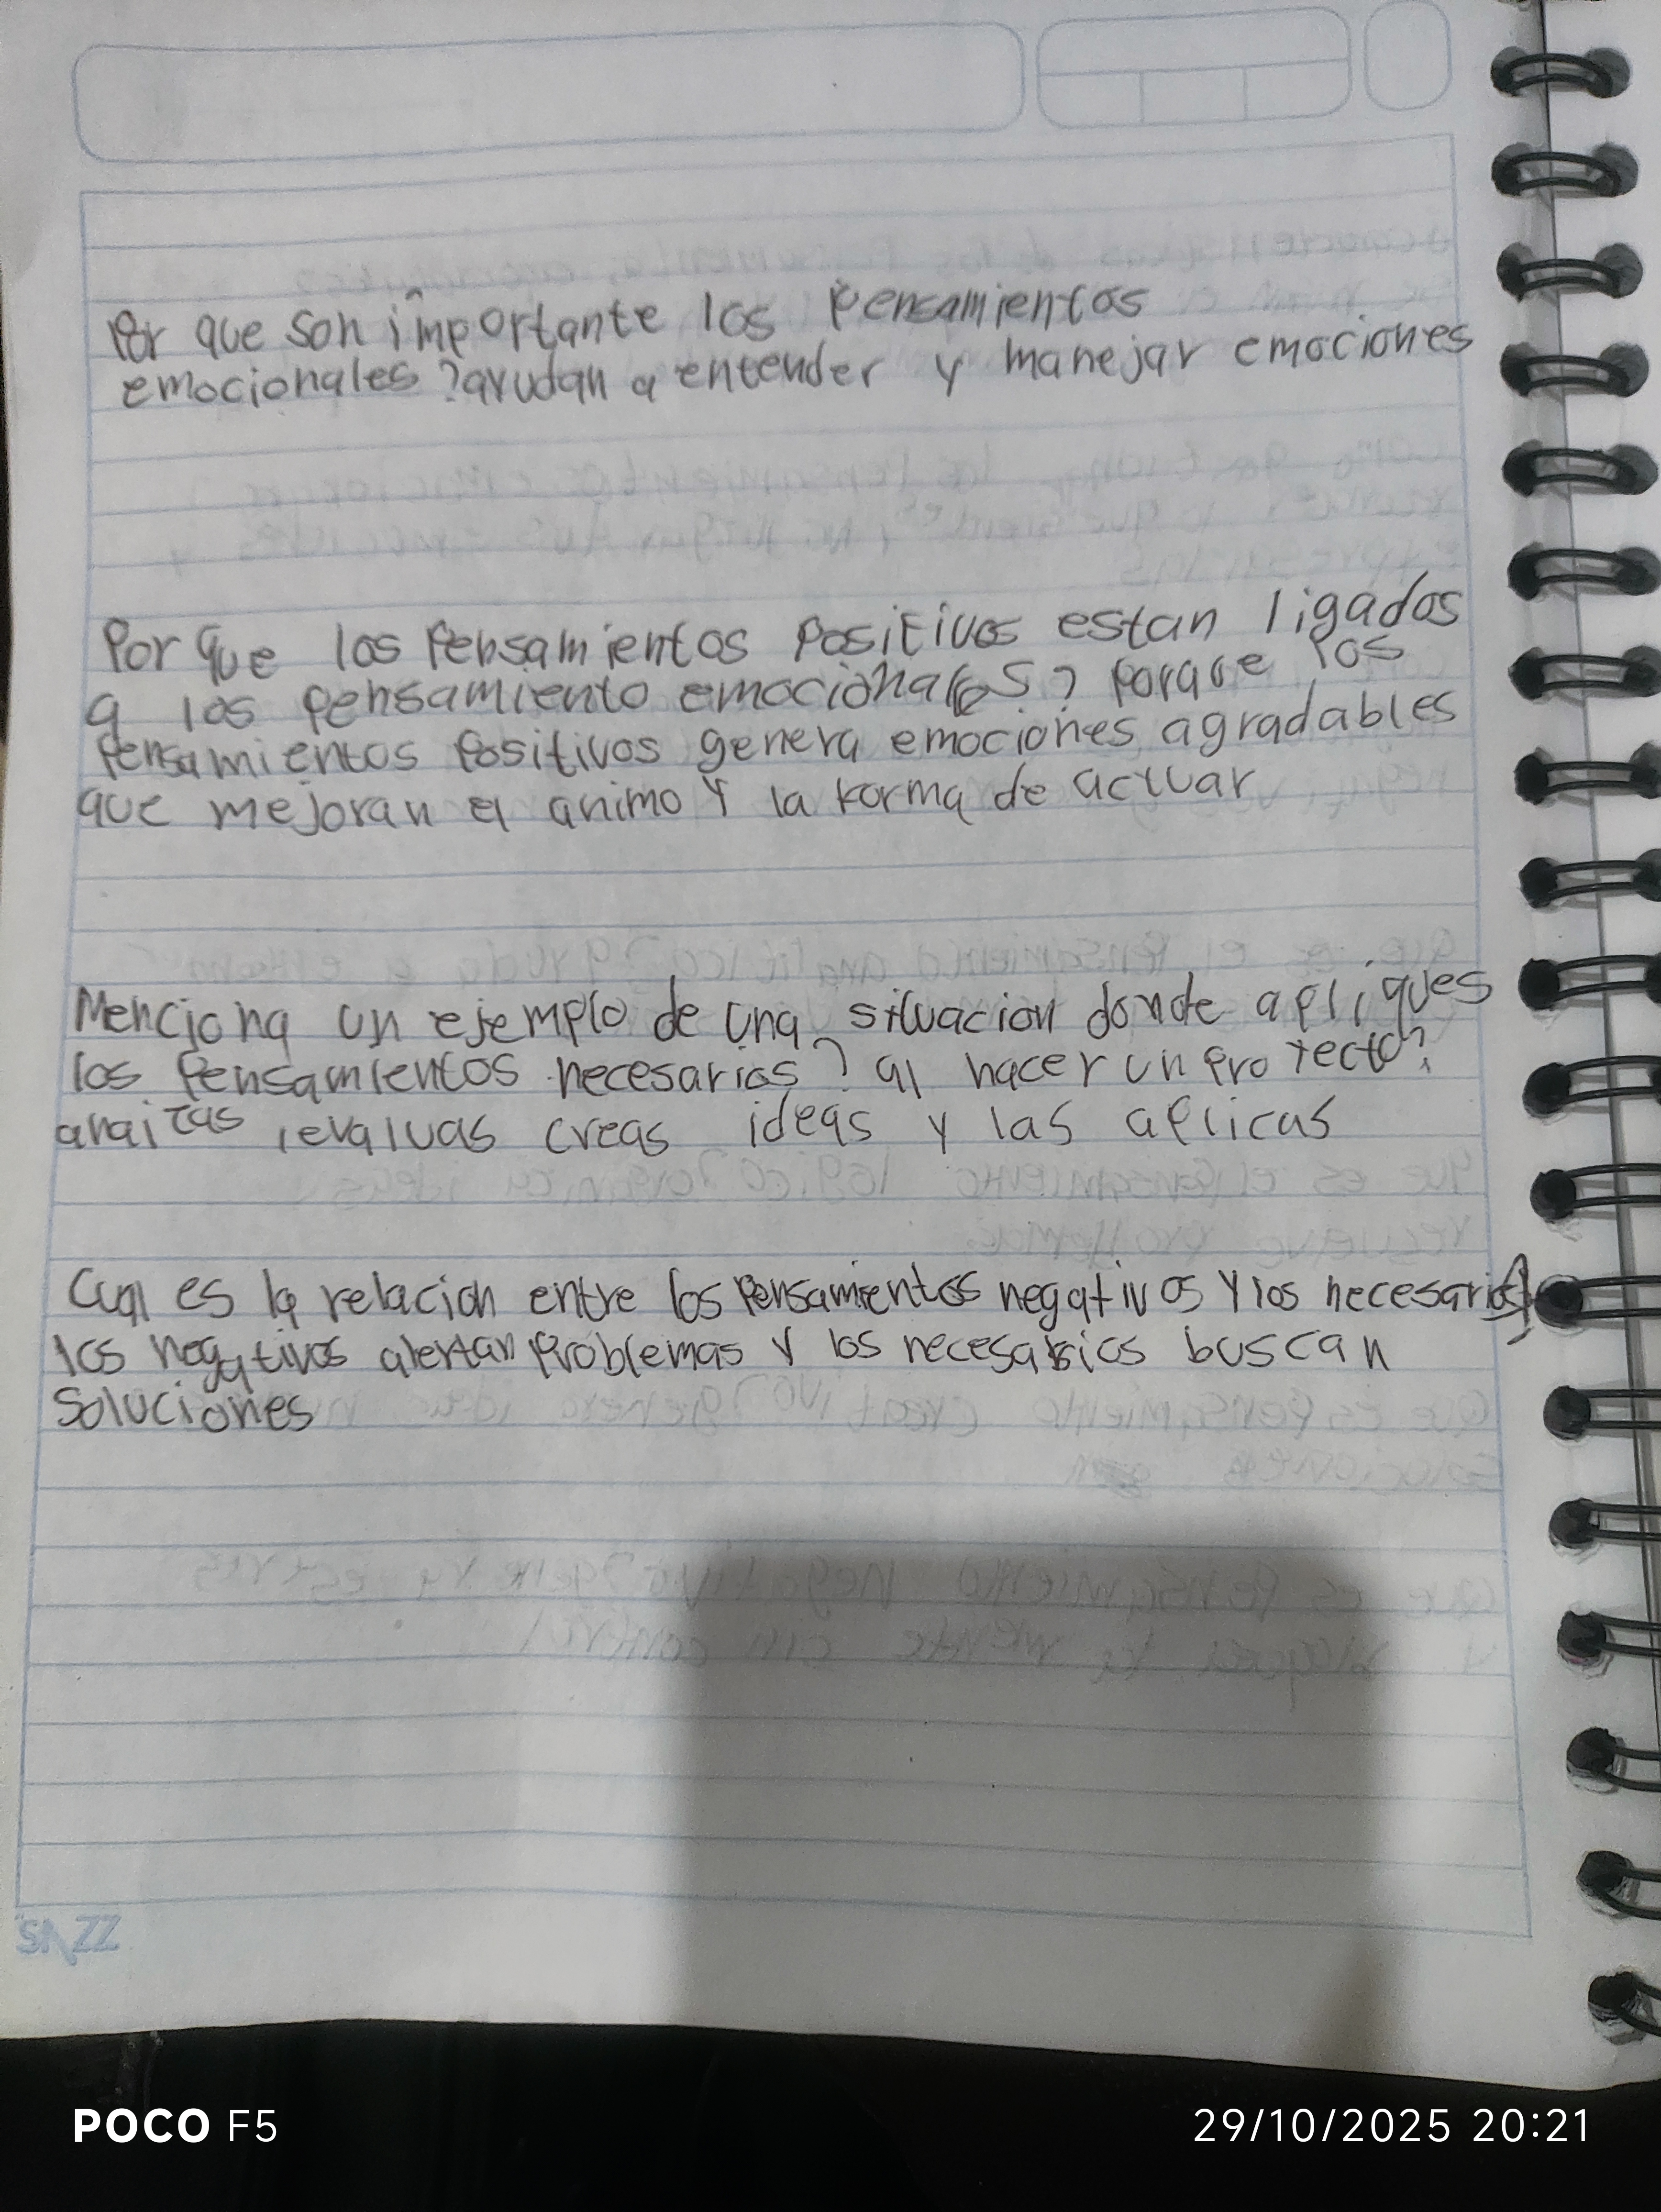 Por que son importante los Pensamientos
emocionales? ayudan a entender y manejar emociones
Por que los Pensamientos Positivos estan ligados
a los pensamiento emocionales? Porque los
Pensamientos Positivos genera emociones agradables
que mejoran el animo y la forma de actuar
Menciona un ejemplo de una situacion donde apliques
los Pensamientos necesarios? al hacer un Proyecto?
, evaluas creas ideas y las aplicas
Cual es la relacion entre los Pensamientos negativos y los necesarios?
los negativos alertan Problemas y los necesarios buscan
Soluciones
POCO F5
29/10/2025 20:21